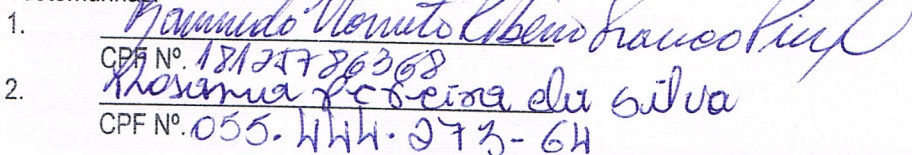 1. Raimundo Nonato Ribeiro Franco
CPF Nº. 18125786368
2. Rosanna Pereira da Silva
CPF Nº. 055.444.273-64